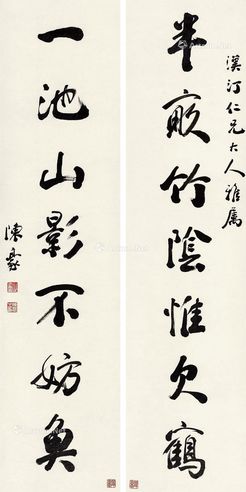 漢汀仁兄大人雅屬
半畝竹陰惟欠鶴
一池山影不妨魚
陳豪